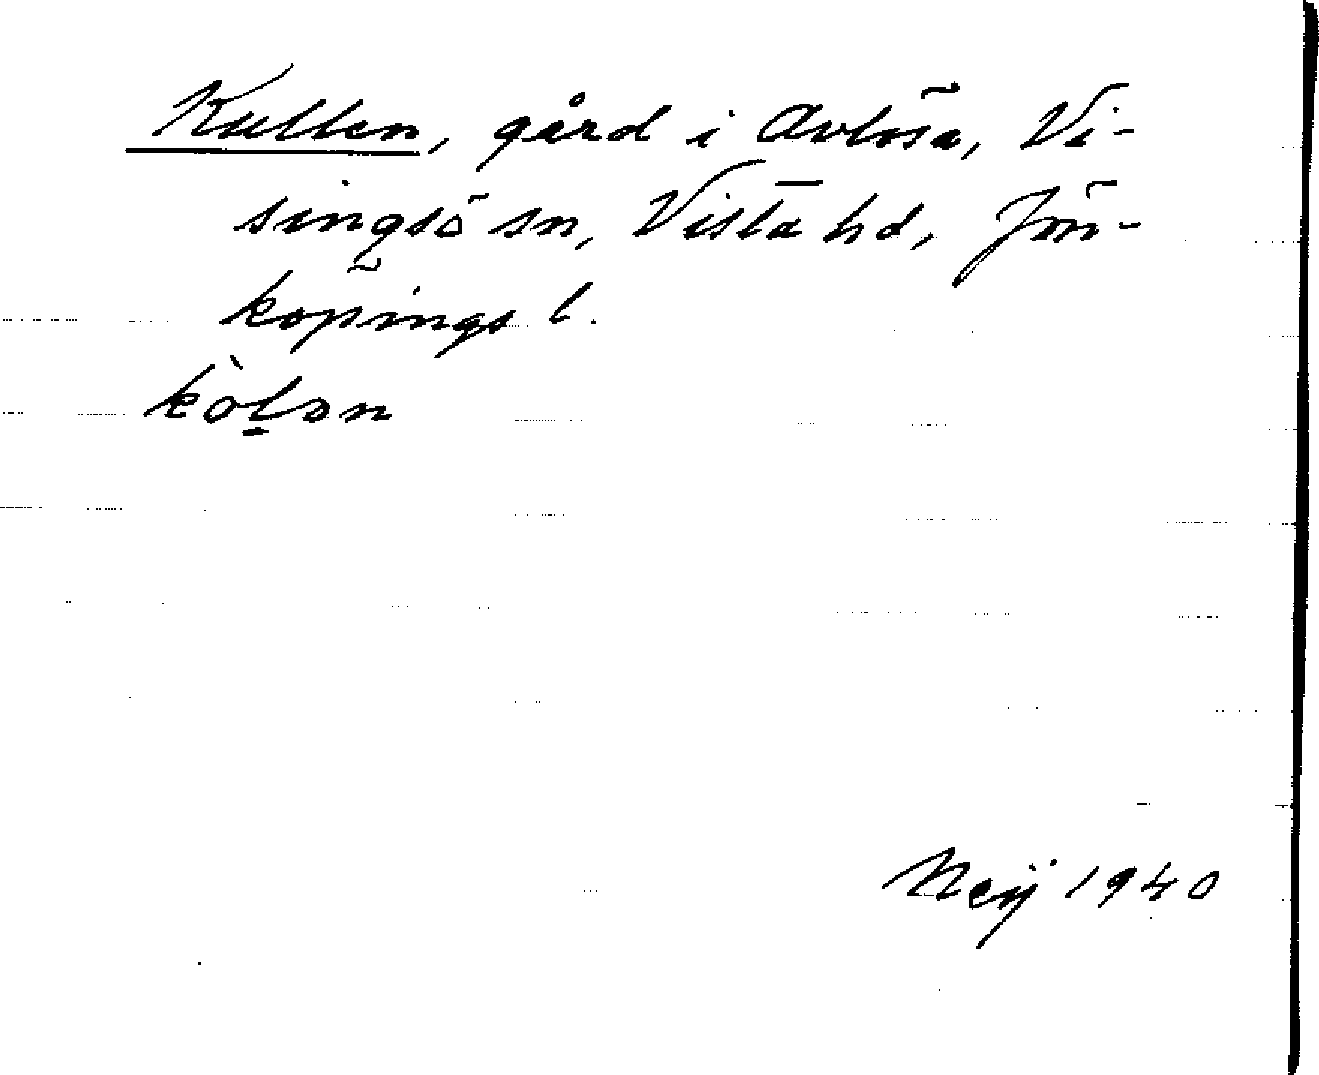 Kullen, gård i Avlösa, Vi-
singsö sn, Vista hd, Jön-
köpings l.
kòlən
Neij 1940